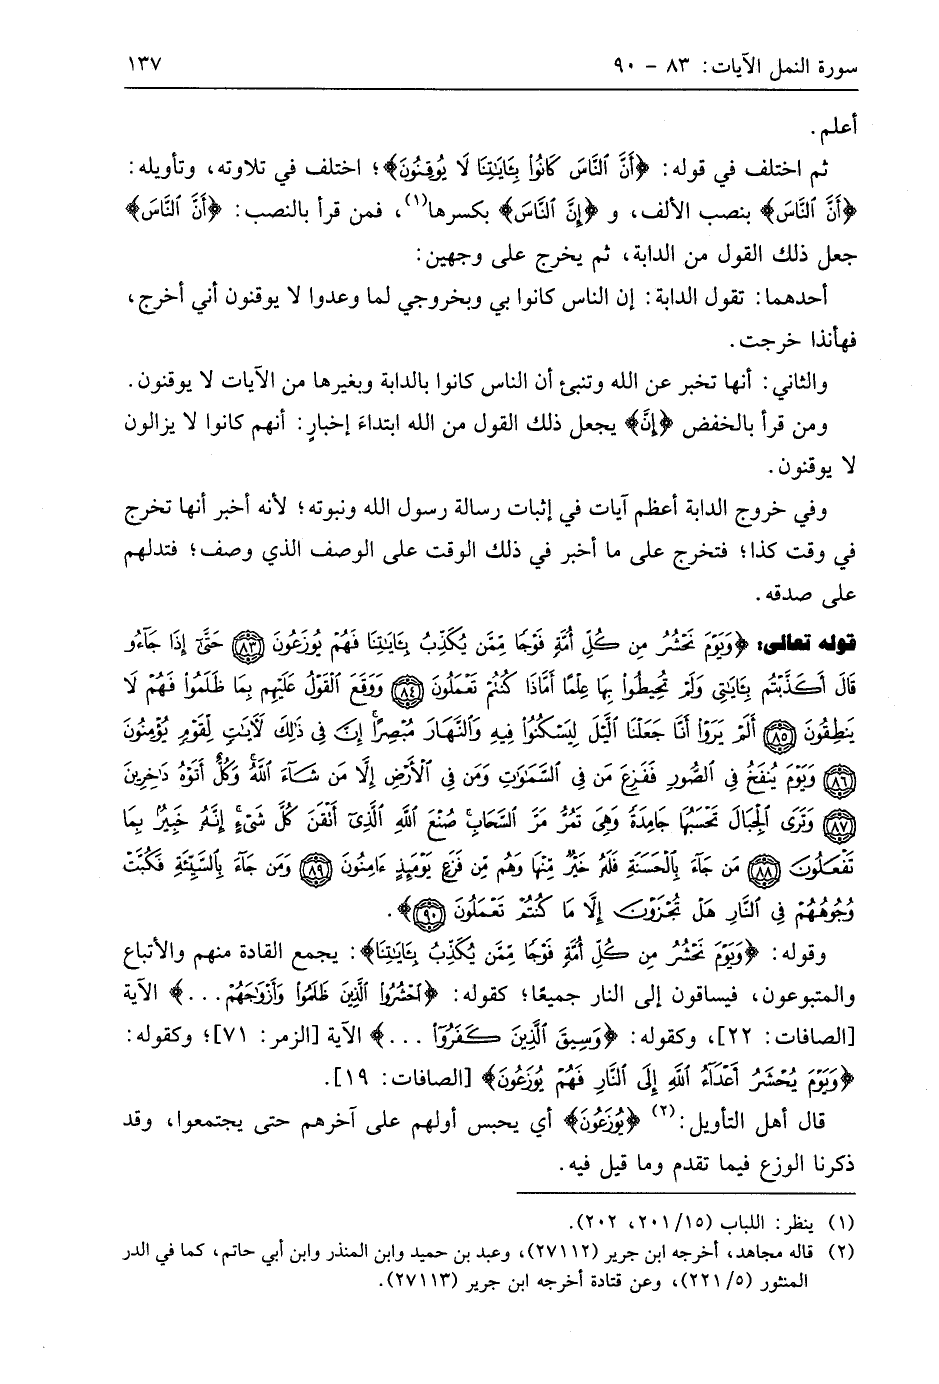 سورة النمل الآيات: ٨٣ - ٩٠ ١٣٧
أعلم.
ثم اختلف في قوله: ﴿أَنَّ ٱلنَّاسَ كَانُوا۟ بِـَٔايَـٰتِنَا لَا يُوقِنُونَ﴾؛ اختلف في تلاوته، وتأويله:
﴿أَنَّ ٱلنَّاسَ﴾ بنصب الألف، و ﴿إِنَّ ٱلنَّاسَ﴾ بكسرها(١)، فمن قرأ بالنصب: ﴿أَنَّ ٱلنَّاسَ﴾
جعل ذلك القول من الدابة، ثم يخرج على وجهين:
أحدهما: تقول الدابة: إن الناس كانوا بي وبخروجي لما وعدوا لا يوقنون أني أخرج،
فهأنذا خرجت.
والثاني: أنها تخبر عن الله وتنبئ أن الناس كانوا بالدابة وبغيرها من الآيات لا يوقنون.
ومن قرأ بالخفض ﴿إِنَّ﴾ يجعل ذلك القول من الله ابتداءَ إخبارٍ: أنهم كانوا لا يزالون
لا يوقنون.
وفي خروج الدابة أعظم آيات في إثبات رسالة رسول الله ونبوته؛ لأنه أخبر أنها تخرج
في وقت كذا؛ فتخرج على ما أخبر في ذلك الوقت على الوصف الذي وصف؛ فتدلهم
على صدقه.
قوله تعالى: ﴿وَيَوْمَ نَحْشُرُ مِن كُلِّ أُمَّةٍ فَوْجًا مِّمَّن يُكَذِّبُ بِـَٔايَـٰتِنَا فَهُمْ يُوزَعُونَ ٨٣ حَتَّىٰٓ إِذَا جَآءُو
قَالَ أَكَذَّبْتُم بِـَٔايَـٰتِى وَلَمْ تُحِيطُوا۟ بِهَا عِلْمًا أَمَّاذَا كُنتُمْ تَعْمَلُونَ ٨٤ وَوَقَعَ ٱلْقَوْلُ عَلَيْهِم بِمَا ظَلَمُوا۟ فَهُمْ لَا
يَنطِقُونَ ٨٥ أَلَمْ يَرَوْا۟ أَنَّا جَعَلْنَا ٱلَّيْلَ لِيَسْكُنُوا۟ فِيهِ وَٱلنَّهَارَ مُبْصِرًا ۚ إِنَّ فِى ذَٰلِكَ لَـَٔايَـٰتٍ لِّقَوْمٍ يُؤْمِنُونَ
٨٦ وَيَوْمَ يُنفَخُ فِى ٱلصُّورِ فَفَزِعَ مَن فِى ٱلسَّمَـٰوَٰتِ وَمَن فِى ٱلْأَرْضِ إِلَّا مَن شَآءَ ٱللَّهُ ۚ وَكُلٌّ أَتَوْهُ دَٰخِرِينَ
٨٧ وَتَرَى ٱلْجِبَالَ تَحْسَبُهَا جَامِدَةً وَهِىَ تَمُرُّ مَرَّ ٱلسَّحَابِ ۚ صُنْعَ ٱللَّهِ ٱلَّذِىٓ أَتْقَنَ كُلَّ شَىْءٍ ۚ إِنَّهُۥ خَبِيرٌۢ بِمَا
تَفْعَلُونَ ٨٨ مَن جَآءَ بِٱلْحَسَنَةِ فَلَهُۥ خَيْرٌ مِّنْهَا وَهُم مِّن فَزَعٍ يَوْمَئِذٍ ءَامِنُونَ ٨٩ وَمَن جَآءَ بِٱلسَّيِّئَةِ فَكُبَّتْ
وُجُوهُهُمْ فِى ٱلنَّارِ هَلْ تُجْزَوْنَ إِلَّا مَا كُنتُمْ تَعْمَلُونَ ٩٠﴾.
وقوله: ﴿وَيَوْمَ نَحْشُرُ مِن كُلِّ أُمَّةٍ فَوْجًا مِّمَّن يُكَذِّبُ بِـَٔايَـٰتِنَا﴾: يجمع القادة منهم والأتباع
والمتبوعون، فيساقون إلى النار جميعًا؛ كقوله: ﴿ٱحْشُرُوا۟ ٱلَّذِينَ ظَلَمُوا۟ وَأَزْوَٰجَهُمْ...﴾ الآية
[الصافات: ٢٢]، وكقوله: ﴿وَسِيقَ ٱلَّذِينَ كَفَرُوٓا۟ ...﴾ الآية [الزمر: ٧١]؛ وكقوله:
﴿وَيَوْمَ يُحْشَرُ أَعْدَآءُ ٱللَّهِ إِلَى ٱلنَّارِ فَهُمْ يُوزَعُونَ﴾ [الصافات: ١٩].
قال أهل التأويل:(٢) ﴿يُوزَعُونَ﴾ أي يحبس أولهم على آخرهم حتى يجتمعوا، وقد
ذكرنا الوزع فيما تقدم وما قيل فيه.
(١) ينظر: اللباب (١٥/٢٠١، ٢٠٢).
(٢) قاله مجاهد، أخرجه ابن جرير (٢٧١١٢)، وعبد بن حميد وابن المنذر وابن أبي حاتم، كما في الدر
المنثور (٥/٢٢١)، وعن قتادة أخرجه ابن جرير (٢٧١١٣).